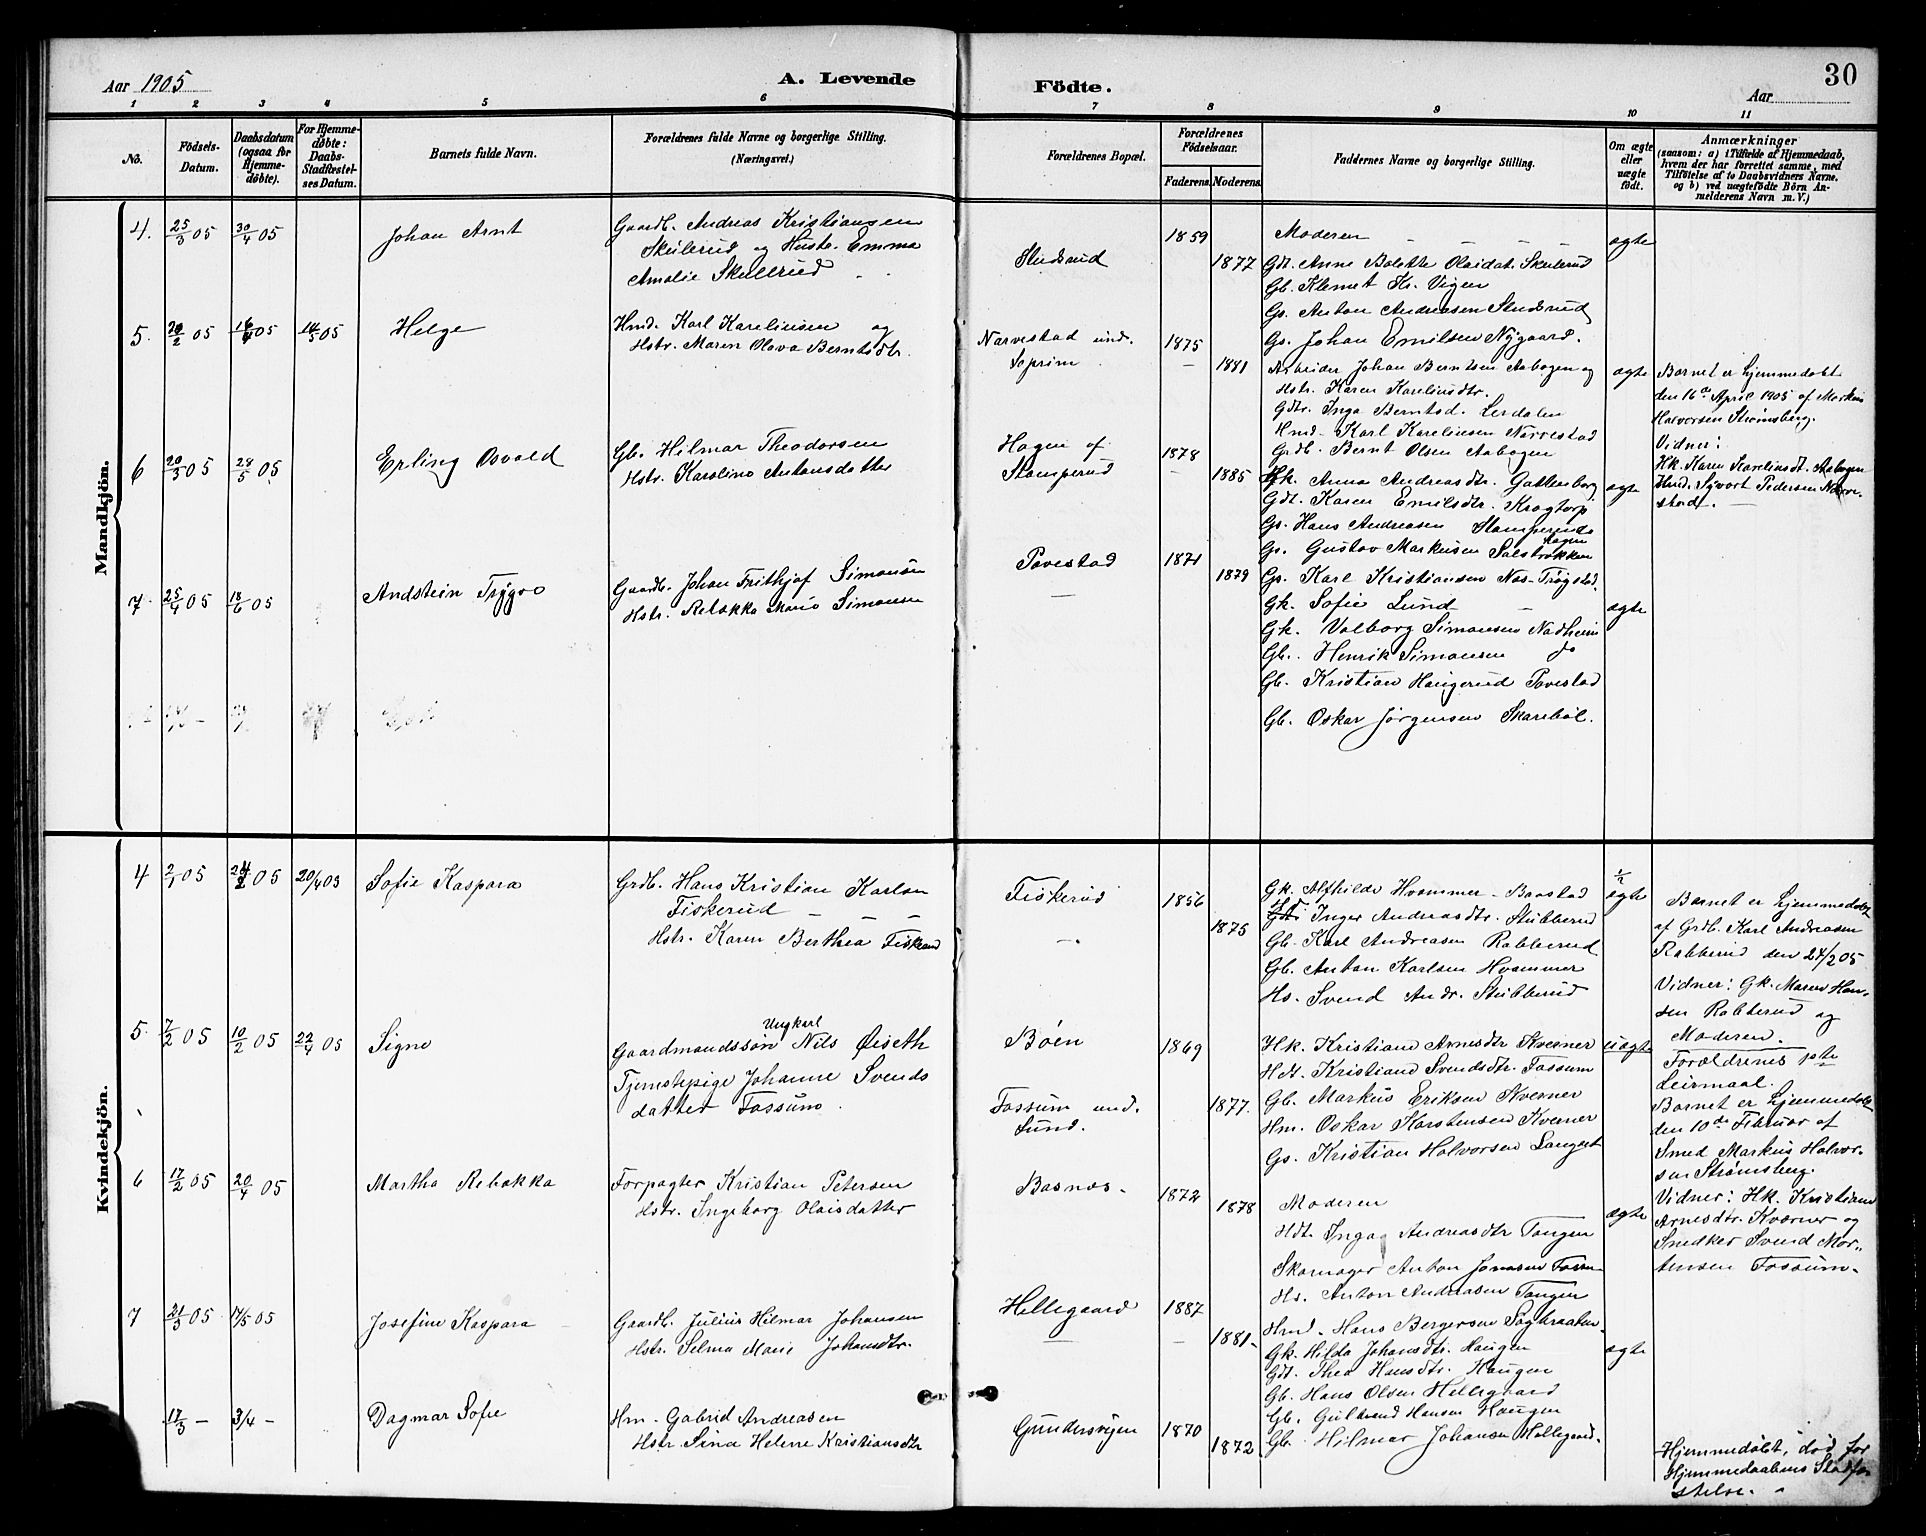 Aar 1905
A. Levende
Födte.
30
Aar
1 2 3 4 5 6 7 8 9 10 11
No.
Födsels-Datum.
Daabsdatum (ogsaa for Hjemmedøbte).
For Hjemmedøbte: Daabs-Stadfæstelses Datum.
Barnets fulde Navn.
Forældrenes fulde Navne og borgerlige Stilling.
(Næringsvei.)
Forældrenes Bopæl.
Forældrenes Födselsaar.
Faderens. Moderens.
Faddernes Navne og borgerlige Stilling.
Om ægte eller uægte født.
Anmærkninger
(saasom: a) i Tilfælde af Hjemmedaab, hvem der har forrettet samme, med Tilföielse af to Daabsvidners Navne, og b) ved uægtefödte Börn Anmelderens Navn m. V.)
Mandkjön.
4. 25/3 05 30/4 05
Johan Arnt
Gaardb. Andreas Kristiansen
Skulerud og Hustr. Emma
Amalie Skullerud
Studsrud
1859
1877
Moderen
Gdt. Anne Bolette Olaidat. Skulerud
Gb. Klemet Kr. Vigen
Gs. Anton Andreasen Studsrud
Gs. Johan Emilsen Nygaard.
ægte
5. 20/2 05 16/4 05 14/5 05
Helge
Hmd. Karl Kareliusen og
Hstr. Maren Olava Berntsdtr.
Narvestad und.
Soprim
1875
1881
Arbeider Johan Berntsen Aabogen og
Hstr. Karen Kareliusdtr.
Gdtr. Inga Berntsd. Lerdalen
Hmd. Karl Kareliusen Narvestad
Grdb. Bernt Olsen Aabogen
ægte
Barnet er hjemmedøbt
den 16de April 1905 af Markus
Halvorsen Strømsberg.
Vidner:
Hk. Karen Kareliusdt. Aabogen
Hmd. Syvert Pedersen Narve-
stad.
6 20/3 05 28/5 05
Erling Osvald
Gb. Hilmar Theodorsen
Hstr. Karoline Antonsdatter
Hagen af
Stamperud
1878
1885
Gk. Anna Andreasdtr. Gakkenborg
Gdt. Karen Emilsdtr. Krogtorp
Gs. Hans Andreasen Stamperud
hagen
Gs. Gustav Markusen Solstrøkken
ægte
7. 25/4 05 18/6 05
Andstein Trygve
Gaardb. Johan Frithjof Simonsen
Hstr. Rebekka Marie Simonsen
Povestad
1871
1879
Gs. Karl Kristiansen Nes-Trøgstad
Gk. Sofie Lund
Gk. Valborg Simonsen Nadheim
Gb. Henrik Simonsen do
Gb. Kristian Haugerud Povestad
Gb. Oskar Jørgensen Skarebøl.
ægte
Kvindekjön.
4 2/1 05 24/2 05 20/4 05
Sofie Kaspara
Grdb. Hans Kristian Karlsen
Fiskerud
Hstr. Karen Berthea Fiskerud
Fiskerud
1856
1875
Gk. Alfhilde Hvammer-Baastad
Inger Andreasdtr. Stubberud
Gb. Karl Andreasen Rabberud
Gb. Anton Karlsen Hvammer
Hs. Svend Andr. Stubberud
ægte
Barnet er hjemmedøbt
af Grdb. Karl Andreasen
Rabberud den 24/2 05
Vidner: Gk. Maren Han-
sen Rabberud og
Moderen.
5. 7/2 05 10/2 05 22/4 05
Signe
Ungkarl
Gaardmandssøn Nils Øiseth
Tjenestepige Johanne Svends
datter Fossum.
Bøen
Fossum und.
Lund.
1869
1877.
Hk. Kristiane Arnesdtr Kverner
Hdt. Kristiane Svendsdtr. Fossum
Gb. Markus Eriksen Kverner
Hm. Oskar Karstensen Kverner
Gs. Kristian Halvorsen Langset
uægte
Forældrenes 1ste
Leiermaal.
Barnet er hjemmedøbt
den 10de Februar af
Smed Markus Halvor-
sen Strømsberg.
Vidner: Hk. Kristiane
Arnesdtr. Kverner og
Snedker Svend Mor-
tensen Fossum.
6 17/2 05 20/4 05
Martha Rebekka
Forpagter Kristian Petersen
Hstr. Ingeborg Olaisdatter
Basnes.
1872
1878
Moderen
Hdt. Inga Andreasdtr Tangen
Skomager Anton Jonasen
Hs. Anton Andreasen Tangen
ægte
7 21/3 05 14/5 05
Josefine Kaspara
Gaardb. Julius Hilmar Johansen
Hstr. Selma Marie Johansdtr.
Hellegaard
1887
1881
Hmd. Hans Bergersen Sagbraaten
Gk. Hilda Johansdtr. Haugen
Gdt. Thea Hansdtr. Haugen
Gb. Hans Olsen Hellegaard
Gb. Gulbrand Hansen Haugen
Gb. Hilmar Johansen Hellegaard.
ægte
17/3 - 3/4 -
Dagmar Sofie
Hm. Gabriel Andreasen
Hstr. Sina Helene Kristiansdtr
Gundersvigen
1870
1872
Hjemmedøbt, død før
Hjemmedaabens Stadfæ
stelse.